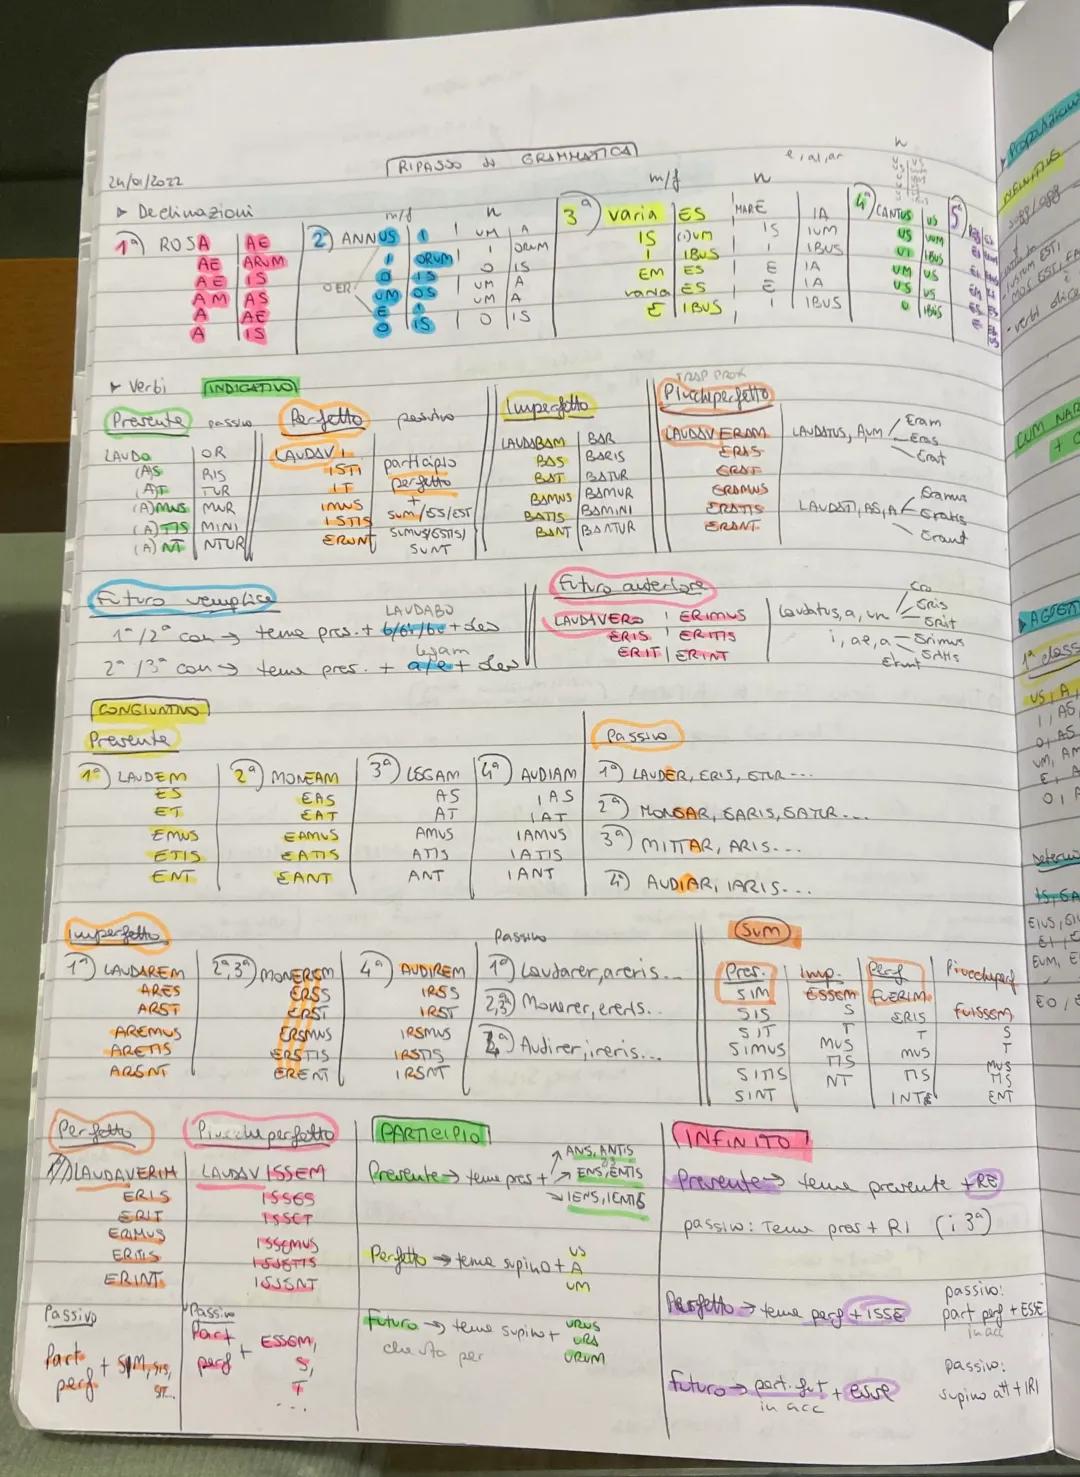 24/01/2022
RIPASSO di GRAMMATICA
▸ Declinazioni
1ª) ROSA | AE
AE | ARUM
AE | IS
AM | AS
A | AE
A | IS
m/f n
2ª) ANNUS | I | UM | A
I | ORUM | I | ORUM
O | IS | O | IS
O ER
UM | OS | UM | A
E | I | UM | A
O | IS | O | IS
m/f n e, al, ar
3ª) varia | ES | MARE | IA
IS | (i)UM | IS | IUM
I | IBUS | I | IBUS
EM | ES | E | IA
varia | ES | E | IA
E | IBUS | I | IBUS
n
4ª) CANTUS | US
US | UUM
UI | IBUS
UM | US
US | US
U | IBUS
5ª)
▸ Verbi INDICATIVO
Presente passivo
LAUDO | OR
(A)S | RIS
(A)T | TUR
(A)MUS | MUR
(A)TIS | MINI
(A)NT | NTUR
Perfetto passivo
LAUDAV I
ISTI
IT
IMUS
ISTIS
ERUNT
participio
perfetto
+
SUM/ES/EST
SUMUS/ESTIS/
SUNT
Imperfetto
LAUDABAM | BAR
BAS | BARIS
BAT | BATUR
BAMUS | BAMUR
BATIS | BAMINI
BANT | BANTUR
TRAP PROX
Piuccheperfetto
LAUDAVERAM
ERAS
ERAT
ERAMUS
ERATIS
ERANT
LAUDATUS, A, UM
Eram
Eras
Erat
LAUDATI, AE, A
Eramus
Eratis
Erant
Futuro semplice
LAUDABO
1ª/2ª con → tema pres. + b/bi/bu + des
legam
2ª/3ª con → tema pres. + a/e + des
Futuro anteriore
LAUDAVERO | ERIMUS
ERIS | ERITIS
ERIT | ERINT
laudatus, a, um
Ero
Eris
Erit
i, ae, a
Erimus
Eritis
Erunt
CONGIUNTIVO
Presente
1ª) LAUDEM
ES
ET
EMUS
ETIS
ENT
2ª) MONEAM
EAS
EAT
EAMUS
EATIS
EANT
3ª) LEGAM
AS
AT
AMUS
ATIS
ANT
4ª) AUDIAM
IAS
IAT
IAMUS
IATIS
IANT
Passivo
1ª) LAUDER, ERIS, ETUR...
2ª) MONEAR, EARIS, EATUR...
3ª) MITTAR, ARIS...
4ª) AUDIAR, IARIS...
Imperfetto
1ª) LAUDAREM
ARES
ARET
AREMUS
ARETIS
ARENT
2ª,3ª) MONEREM
ERES
ERET
EREMUS
ERETIS
ERENT
4ª) AUDIREM
IRES
IRET
IREMUS
IRETIS
IRENT
Passivo
1ª) Laudarer, areris...
2,3ª) Monerer, ereris...
4ª) Audirer, ireris...
SUM
Pres.
SIM
SIS
SIT
SIMUS
SITIS
SINT
Imp.
ESSEM
S
T
MUS
TIS
NT
Perf
FUERIM
ERIS
T
MUS
TIS
INT
Piuccheperf
FUISSEM
S
T
MUS
TIS
ENT
Perfetto
LAUDAVERIM
ERIS
ERIT
ERIMUS
ERITIS
ERINT
Passivo
Part
perf + SIM, SIS,
SIT...
Piuccheperfetto
LAUDAV ISSEM
ISSES
ISSET
ISSEMUS
ISSETIS
ISSENT
Passivo
Part
perf + ESSEM,
S,
T
...
PARTICIPIO
Presente → tema pres +
ANS, ANTIS
ENS, ENTIS
IENS, IENTIS
Perfetto → tema supino +
US
A
UM
Futuro → tema supino +
URUS
URA
URUM
che sta per
INFINITO
Presente → tema presente + RE
passivo: Tema pres + RI (i 3ª)
Perfetto → tema perf + ISSE
passivo:
part perf + ESSE
in acc
Futuro → part. fut + esse
in acc
passivo:
supino att + IRI
CUM NAR
1ª class